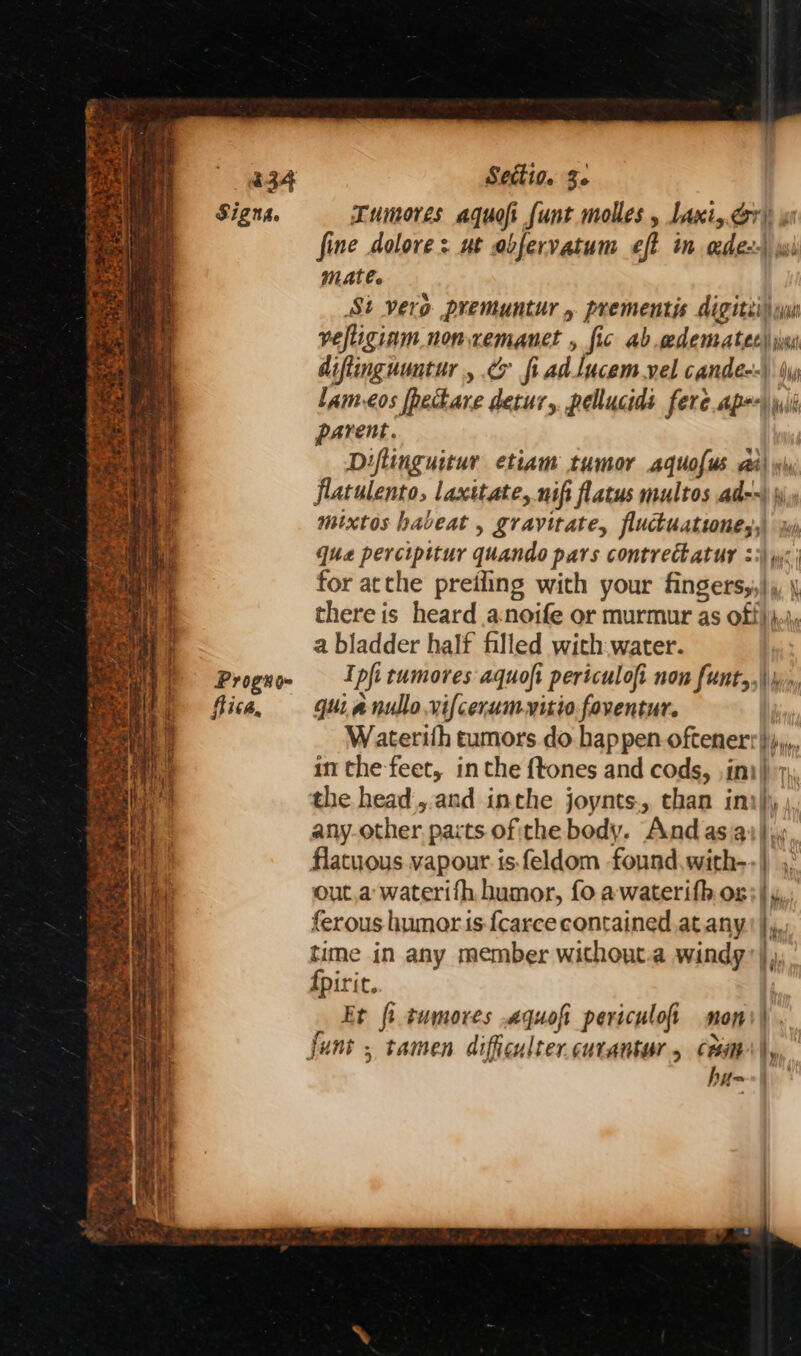 234 Sectio. 3.
Signa. Tumores aquosi sunt molles, laxi, &
sine dolore: ut observatum est in œde-
mate.
Si verò premuntur, prementis digiti
vestigium non remanet, sic ab œdemate
distinguuntur, & si ad lucem vel cande-
lam eos spectare detur, pellucidi ferè ap-
parent.
Distinguitur etiam tumor aquosus à
flatulento, laxitate, nisi flatus multos ad-
mixtos habeat, gravitate, fluctuatione,
quæ percipitur quando pars contrectatur:
for at the pressing with your fingers,
there is heard a noise or murmur as of
a bladder half filled with water.
Progno- Ipsi tumores aquosi periculosi non sunt,
stica, qui à nullo viscerum vitio foventur.
Waterish tumors do happen oftener
in the feet, in the stones and cods, in
the head, and in the joynts, than in
any other parts of the body. And as a
flatuous vapour is seldom found with-
out a waterish humor, so a waterish or
ferous humor is scarce contained at any
time in any member without a windy
spirit.
Et si tumores aquosi periculosi non
sunt, tamen difficulter curantur, cùm
hu-